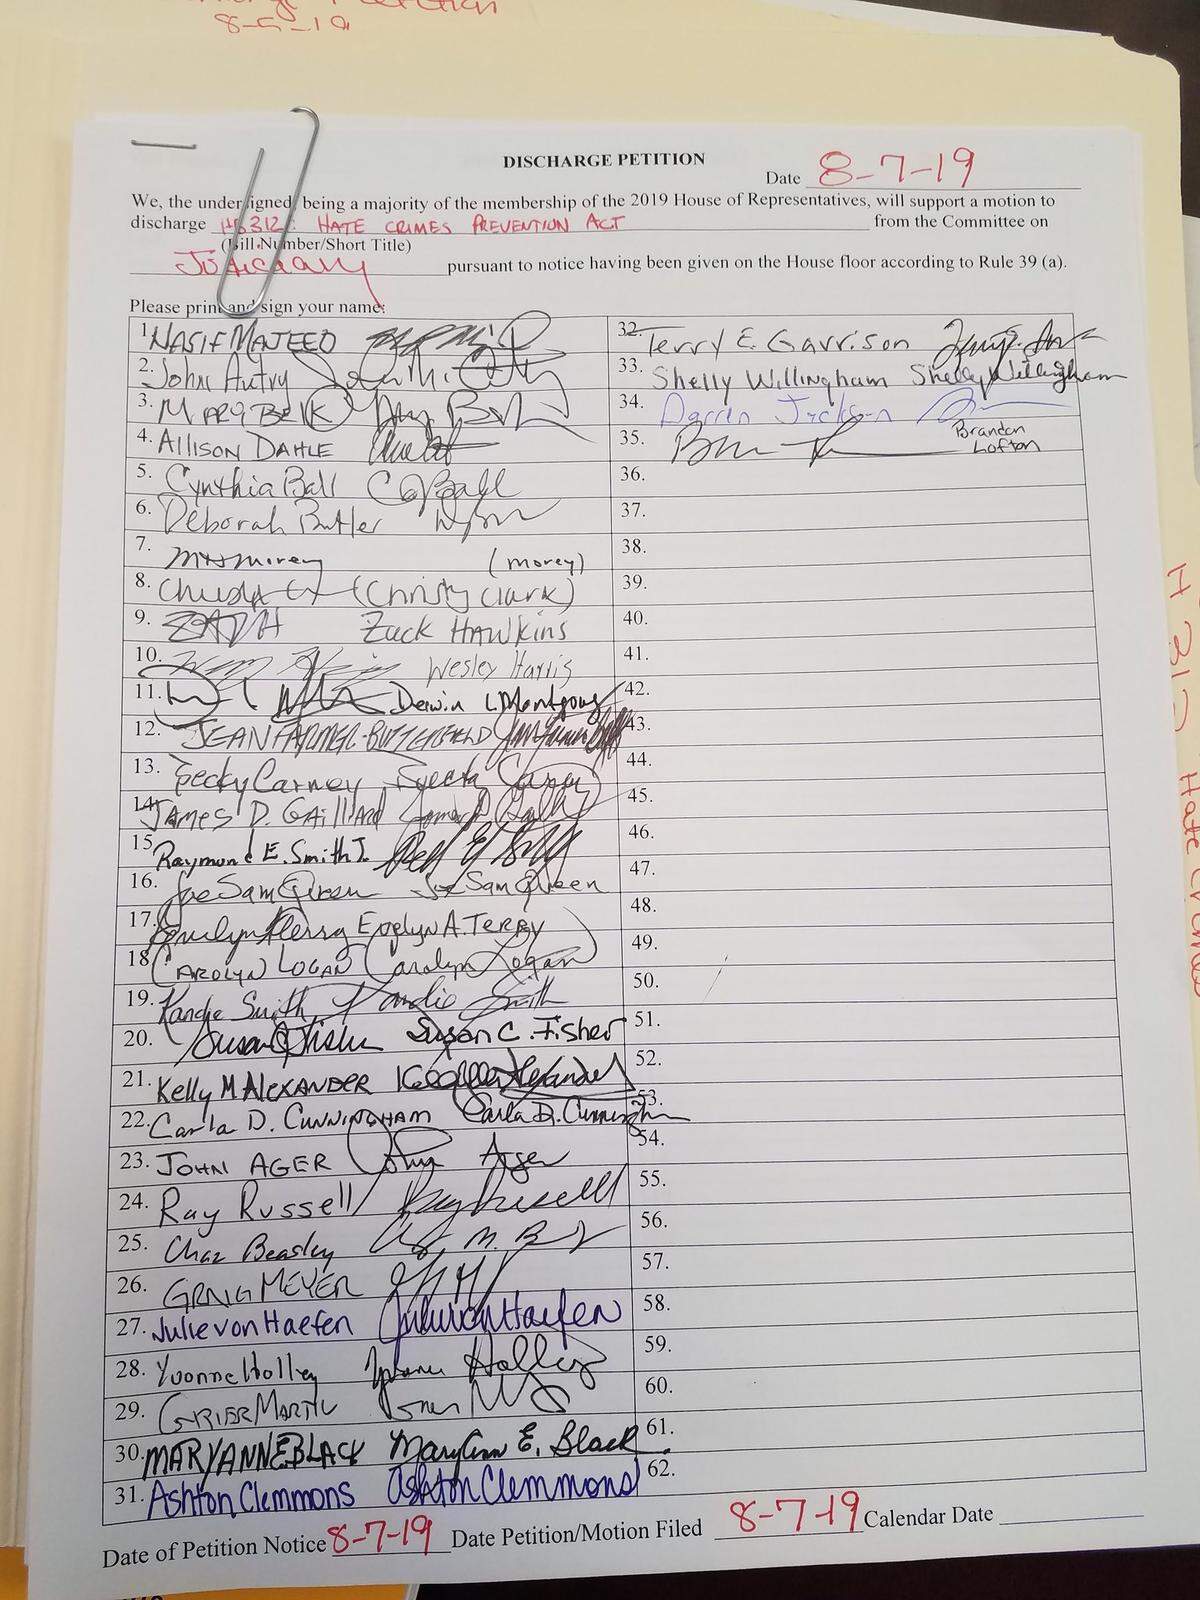 8-5-19
DISCHARGE PETITION
Date 8-7-19
We, the undersigned, being a majority of the membership of the 2019 House of Representatives, will support a motion to
discharge HB312: HATE CRIMES PREVENTION ACT from the Committee on
(Bill Number/Short Title)
Judiciary pursuant to notice having been given on the House floor according to Rule 39 (a).
Please print and sign your name:
1. NASIF MAJEED
2. John Autry
3. MARY BELK
4. ALLISON DAHLE
5. Cynthia Ball C Ball
6. Deborah Butler
7. (morey)
8. (Christy Clark)
9. Zack HAWKINS
10. Wesley Harris
11. Derwin L. Montgomery
12. JEAN FARMER-BUTTERFIELD
13. Becky Carney Becky Carney
14. JAMES D. GAILLARD
15. Raymond E. Smith Jr.
16. Joe Sam Queen Joe Sam Queen
17. Evelyn Terry Evelyn A. TERRY
18. CAROLYN LOGAN Carolyn Logan
19. Kandie Smith Kandie Smith
20. Susan C. Fisher Susan C. Fisher
21. Kelly M ALEXANDER
22. Carla D. CUNNINGHAM Carla D. Cunningham
23. JOHN AGER John Ager
24. Ray Russell Ray Russell
25. Chaz Beasley
26. GRAIG MEYER
27. Julie von Haefen Julie von Haefen
28. Yvonne Holley Yvonne Holley
29. GRIER MARTIN
30. MARYANNE BLACK MaryAnn E. Black
31. Ashton Clemmons Ashton Clemmons
32. Terry E. Garrison
33. Shelly Willingham Shelly Willingham
34. Darren Jackson
35. Brandon
Lofton
36.
37.
38.
39.
40.
41.
42.
43.
44.
45.
46.
47.
48.
49.
50.
51.
52.
53.
54.
55.
56.
57.
58.
59.
60.
61.
62.
Date of Petition Notice 8-7-19 Date Petition/Motion Filed 8-7-19 Calendar Date
H 312 Hate Crimes